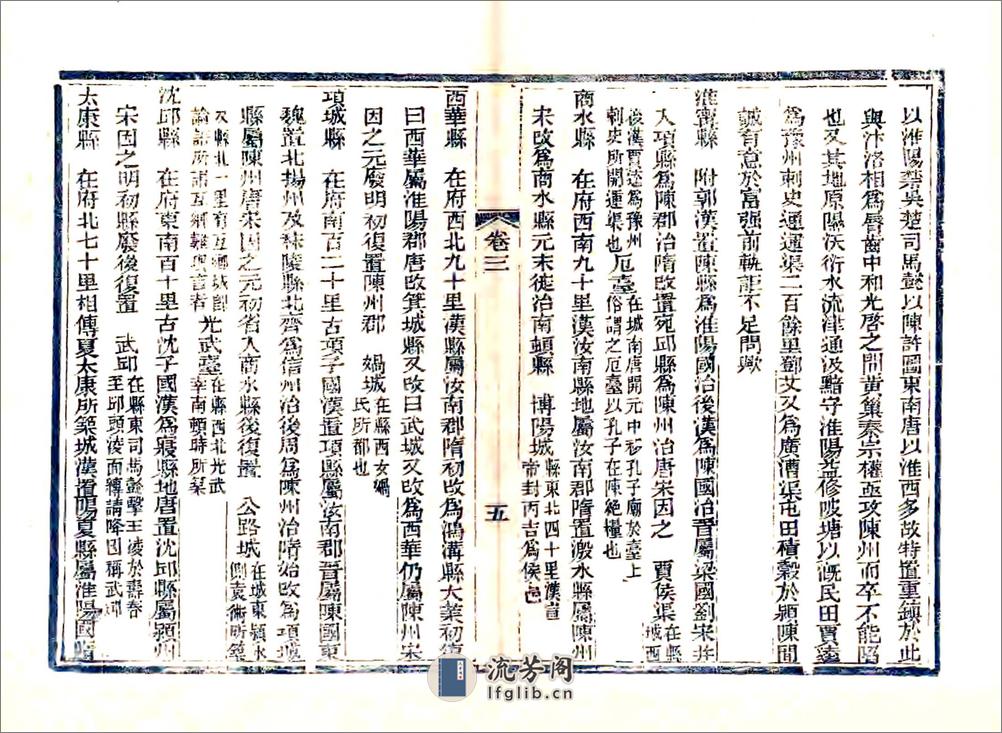 以淮陽禁吳楚司馬懿以陳許圖東南唐以淮西多故特置重鎮於此
與汴洛相為脣齒中和光啓之間黃巢秦宗權亟攻陳州而卒不能陷
也又其地原隰沃衍水流津通汲黯守淮陽益修陂塘以漑民田賈逵
為豫州刺史通運渠二百餘里鄧艾又為廣漕渠屯田積穀於潁陳間
誠有意於富强前軌詎不足問歟
淮寧縣　附郭漢置陳縣為淮陽國治後漢為陳國治晉屬梁國劉宋并
入項縣為陳郡治隋改置宛邱縣為陳州治唐宋因之　賈侯渠在縣城西
後漢賈逵為豫州刺史所開運渠也　厄臺在城南唐開元中移孔子廟於臺上俗謂之厄臺以孔子在陳絶糧也
商水縣　在府西南九十里漢汝南縣地屬汝南郡隋置溵水縣屬陳州
宋改為商水縣元末徙治南頓縣　博陽城縣東北四十里漢宣帝封丙吉為侯邑
卷三
五
西華縣　在府西北九十里漢縣屬汝南郡隋初改為鴻溝縣大業初復
曰西華屬淮陽郡唐改箕城縣又改曰武城又改為西華仍屬陳州宋
因之元廢明初復置陳州郡　媧城在縣西女媧氏所都也
項城縣　在府南百二十里古項子國漢置項縣屬汝南郡晉屬陳國東
魏置北揚州及秣陵縣北齊為信州治後周為陳州治隋始改為項城
縣屬陳州唐宋因之元初省入商水縣後復置　公路城在城東潁水側袁術所築
又縣北一里有互鄉城即論語所謂互鄉難與言者　光武臺在縣西北光武幸南頓時所築
沈邱縣　在府東南百十里古沈子國漢為寢縣地唐置沈邱縣屬潁州
宋因之明初縣廢後復置　武邱在縣東司馬懿擊王凌於壽春至邱頭凌面縛請降因稱武邱
太康縣　在府北七十里相傳夏太康所築城漢置陽夏縣屬淮陽國隋
流芳阁
lfglib.cn